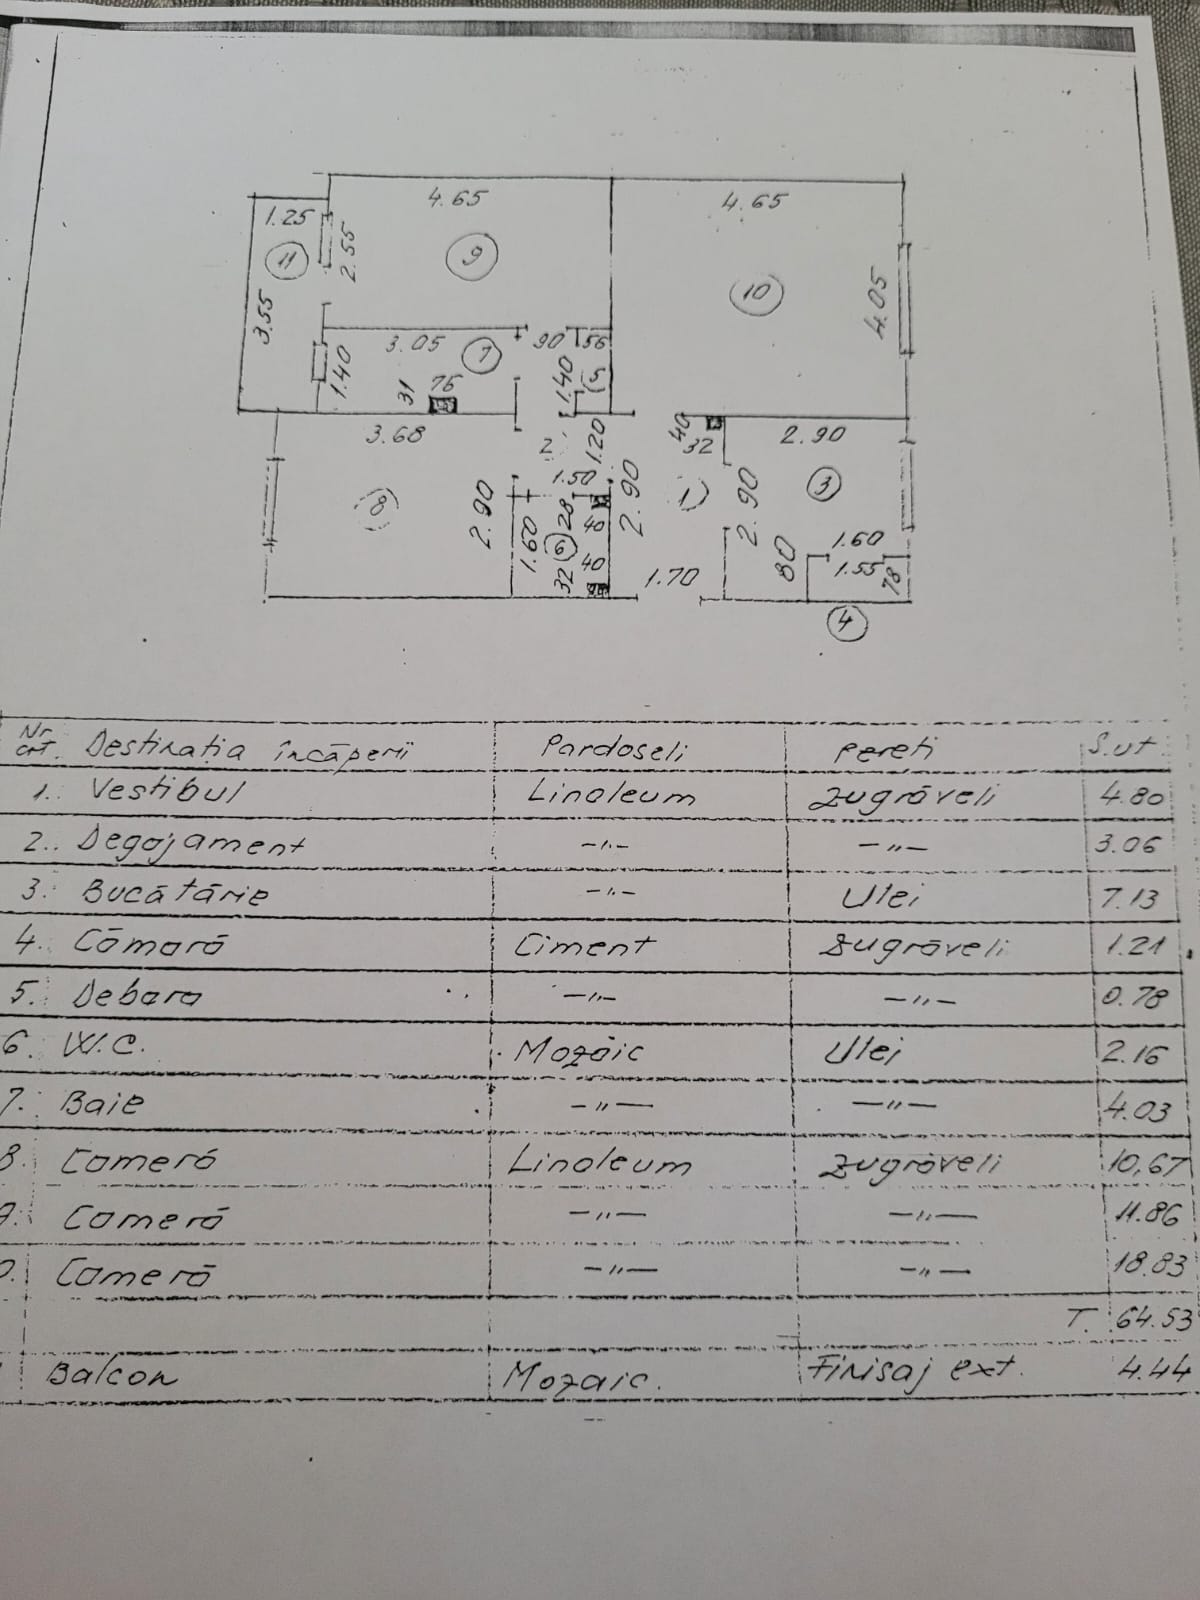 4.65
4.65
1.25
11
2.55
9
10
4.05
3.55
3.05
7
90
56
1.40
31
76
1.40
5
3.68
2
1.20
40
32
2.90
8
2.90
1.50
2.90
1
2.90
3
1.60
28
6
40
1.60
32
40
1.70
80
1.55
78
4
Nr. crt. Destinația încăperii Pardoseli Pereti S.ut.
1. Vestibul Linoleum Zugrăveli 4.80
2. Degajament -"- -"- 3.06
3. Bucătărie -"- Ulei 7.13
4. Cămară Ciment Zugrăveli 1.21
5. Debara -"- -"- 0.78
6. W.C. Mozaic Ulei 2.16
7. Baie -"- -"- 4.03
8. Cameră Linoleum Zugrăveli 10,67
9. Cameră -"- -"- 11.86
0. Cameră -"- -"- 18.83
T. 64.53
Balcon Mozaic. Finisaj ext. 4.44